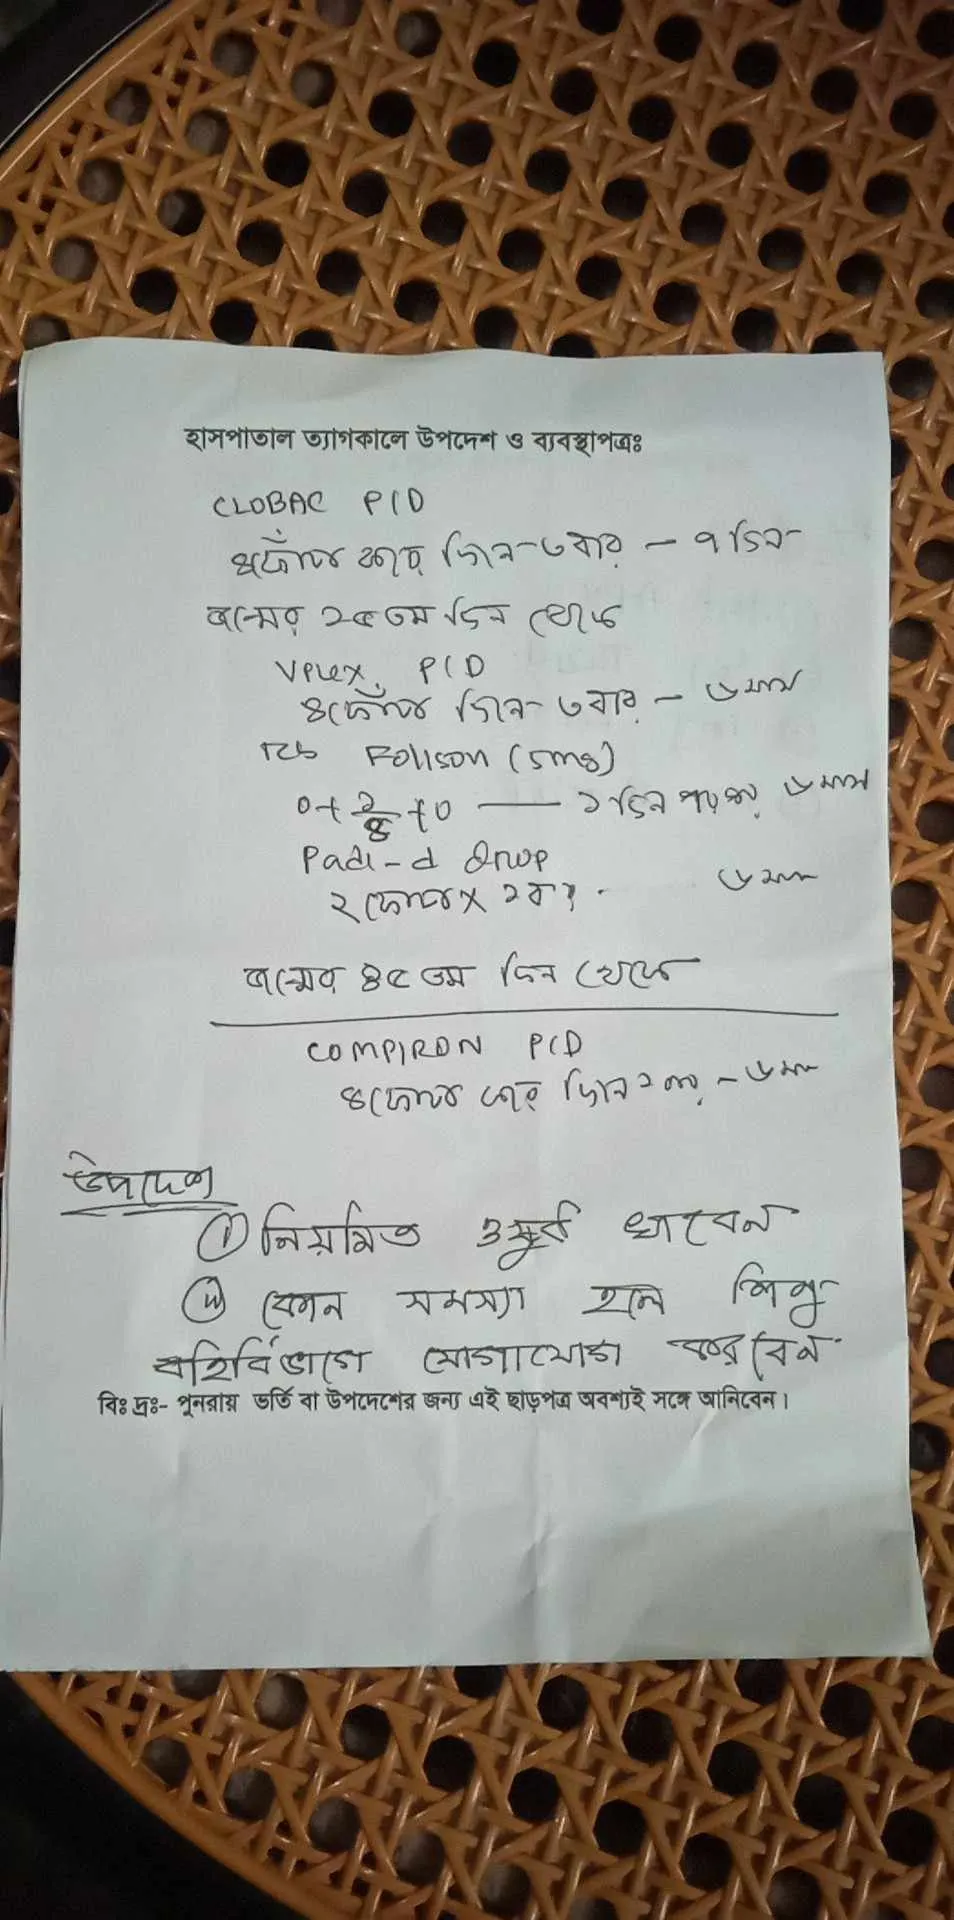 হাসপাতাল ত্যাগকালে উপদেশ ও ব্যবস্থাপত্রঃ
CLOBAC P/D
৪ফোঁটা করে দিনে ৩বার – ৭ দিন
জন্মের ২৫তম দিন থেকে
VPLEX P/D
৪ফোঁটা দিনে ৩বার – ৬ মাস
Tab Folison (5mg)
0 + ১/৪ + 0 — ১দিন পর পর ৬ মাস
Padi-d Drop
২ ফোটা x ১ বার ৬ মাস
জন্মের ৪৫ তম দিন থেকে
COMPIRON P/D
৪ফোটা করে দিনে – ৬ মাস
উপদেশ
(i) নিয়মিত ওষুধ খাবেন
(ii) কোন সমস্যা হলে শিশু
বহির্বিভাগে যোগাযোগ করবেন
বিঃ দ্রঃ- পুনরায় ভর্তি বা উপদেশের জন্য এই ছাড়পত্র অবশ্যই সঙ্গে আনিবেন।